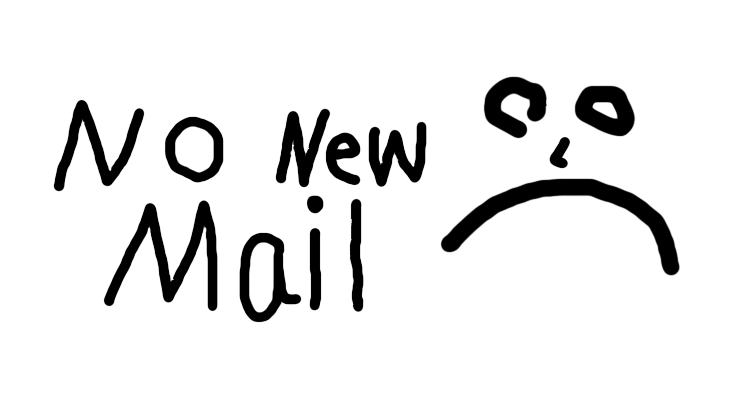 No New
Mail